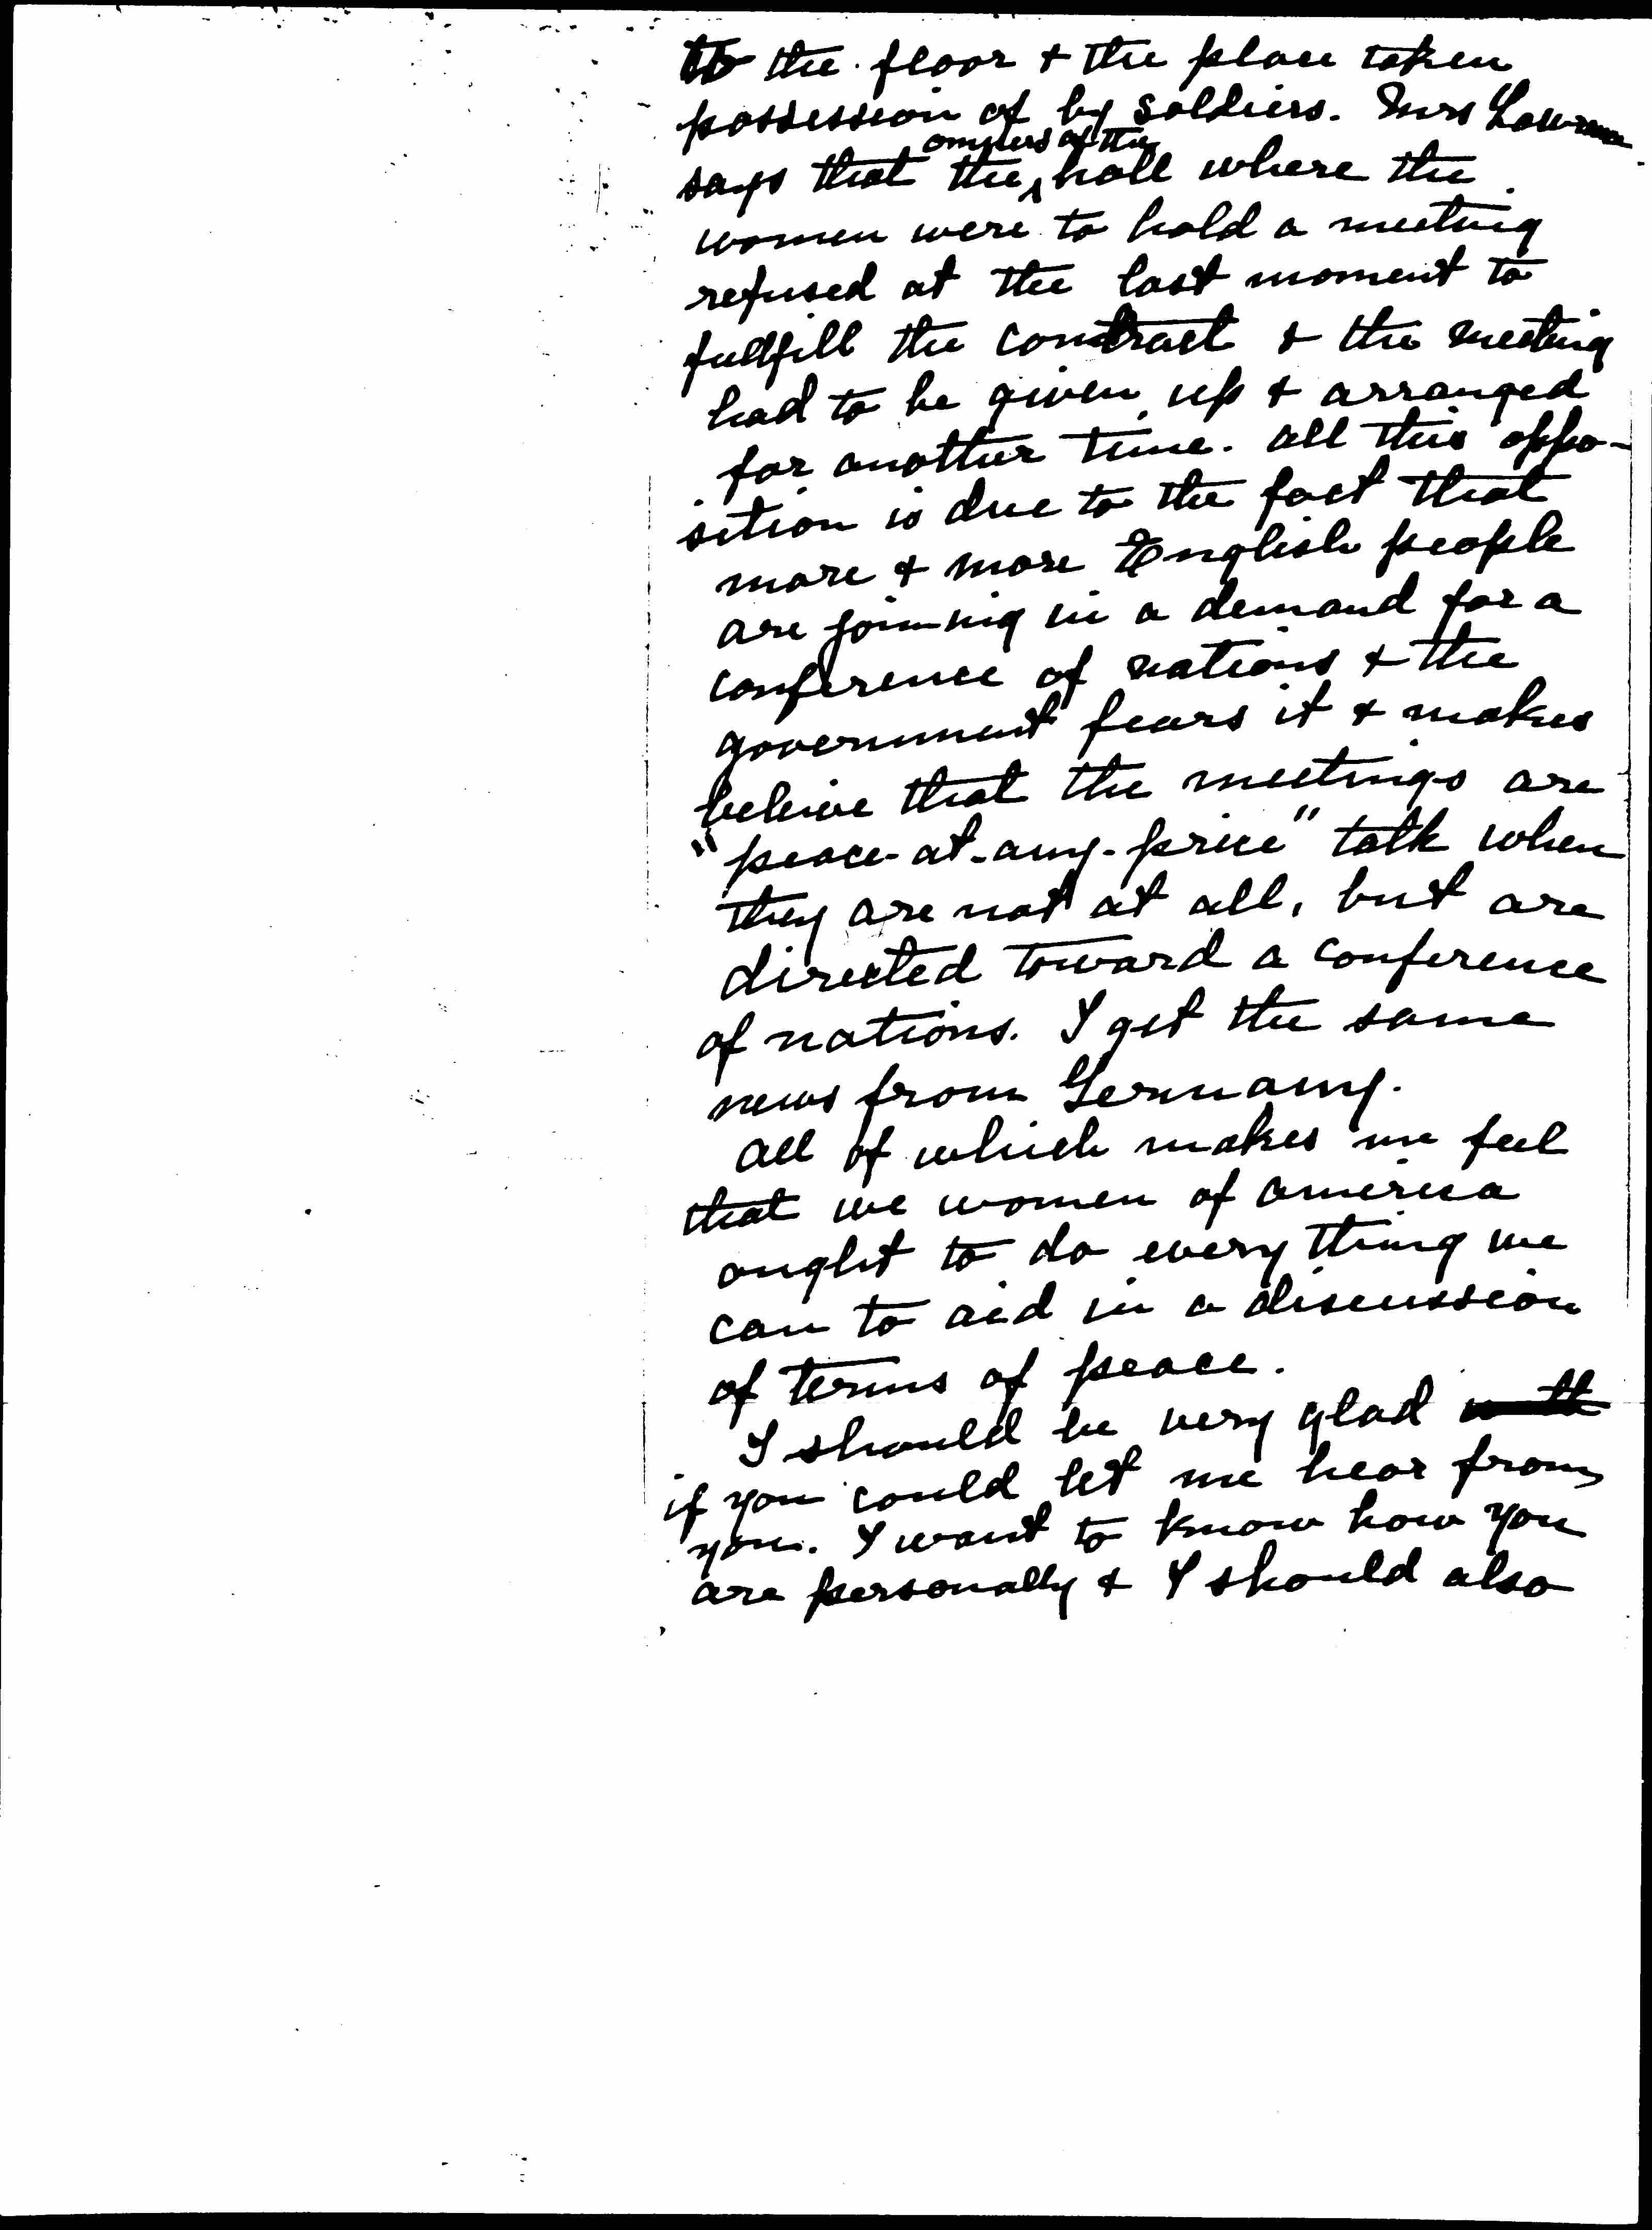 to the floor & the place taken
possession of by soldiers. Mrs Lawrence
says that the owners of the hall where the
women were to hold a meeting
refused at the last moment to
fullfill the contract & the meeting
had to be given up & arranged
for another time. All this oppo-
sition is due to the fact that
more & more English people
are joining in a demand for a
conference of nations & the
government fears it & makes
believe that the meetings are
"peace-at-any-price" talk when
they are not at all, but are
directed toward a conference
of nations. I get the same
news from Germany.
All of which makes me feel
that we women of America
ought to do every thing we
can to aid in a discussion
of terms of peace.
I should be very glad
if you could let me hear from
you. I want to know how you
are personally & I should also